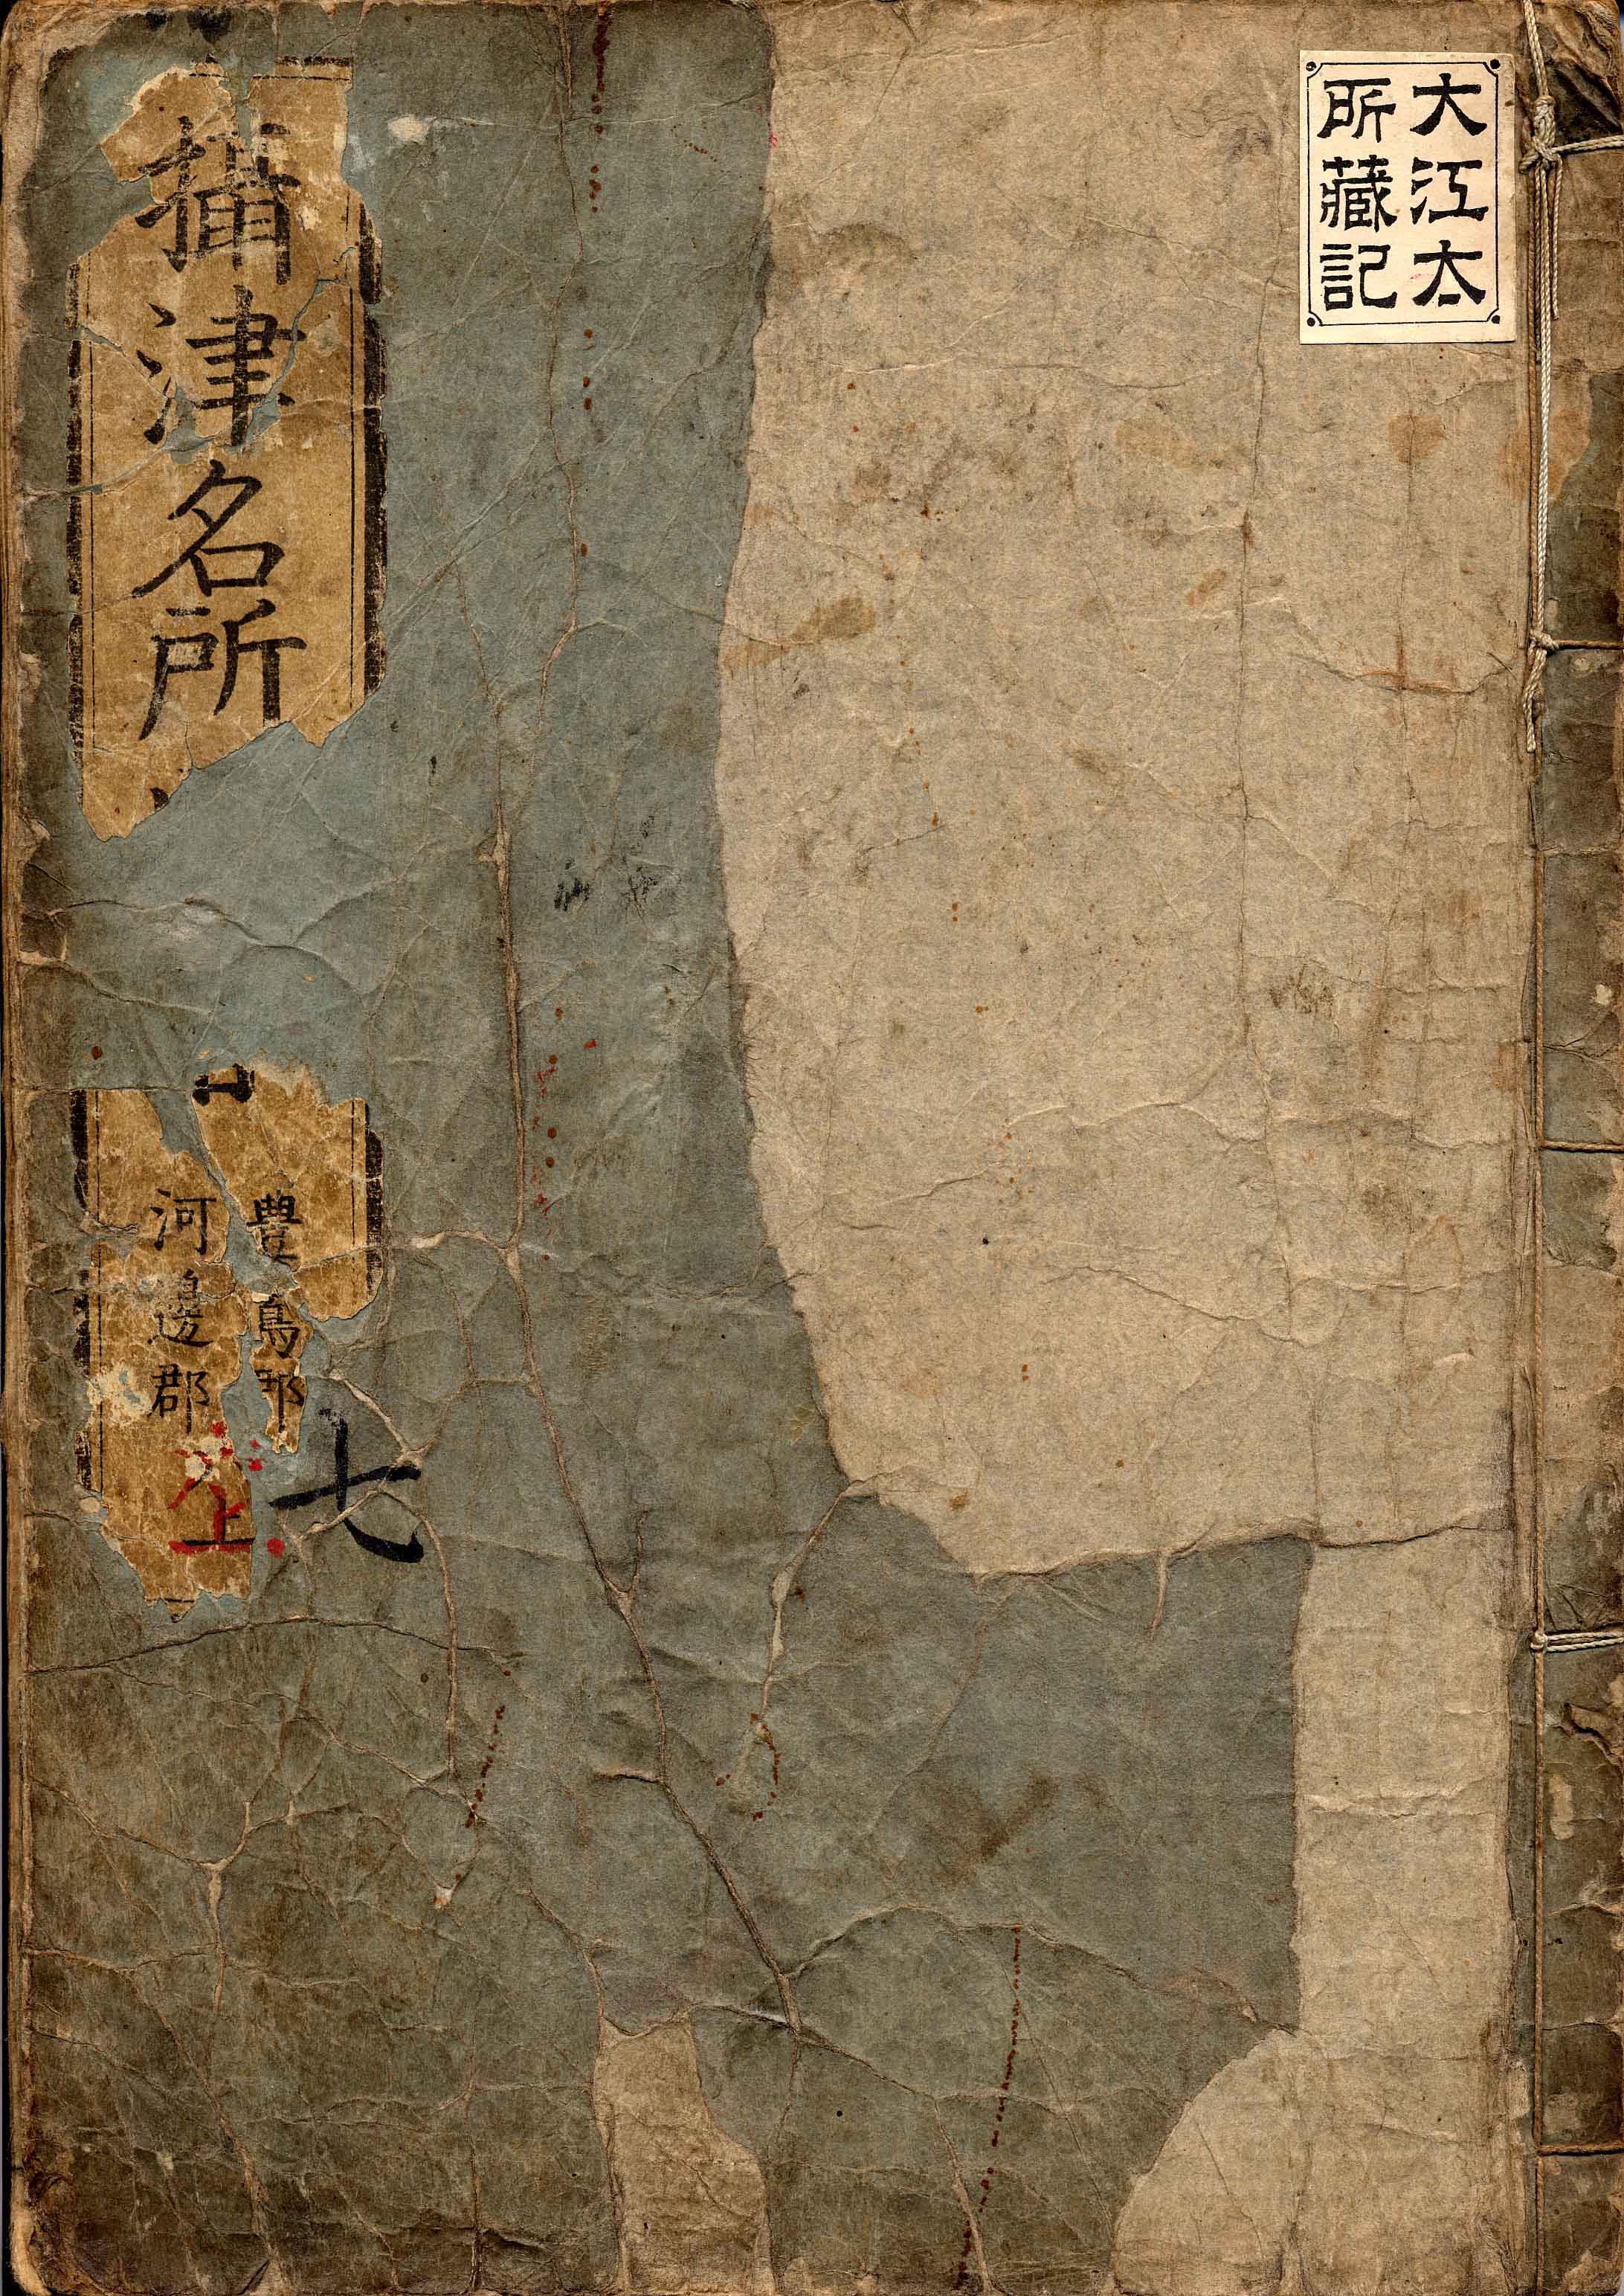 大江太
所藏記
攝津名所
豊島郡
河邉郡
上
七